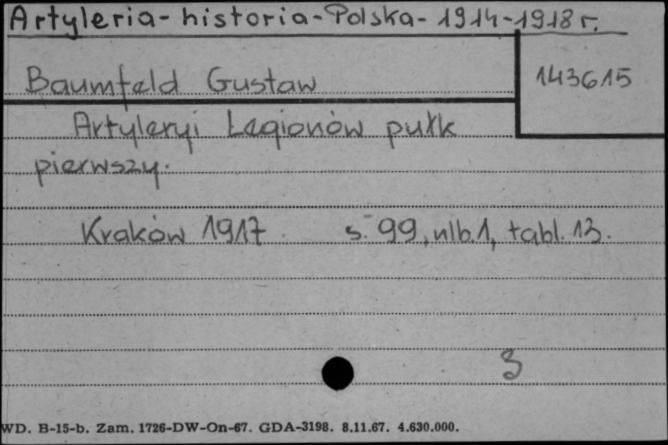 Artyleria - historia - Polska - 1914-1918 r.
Baumfeld Gustaw
143615
Artyleryi Legionów pułk
pierwszy.
Kraków 1917 s. 99, nlb. 1, tabl. 13.
3
WD. B-15-b. Zam. 1726-DW-On-67. GDA-3198. 8.11.67. 4.630.000.